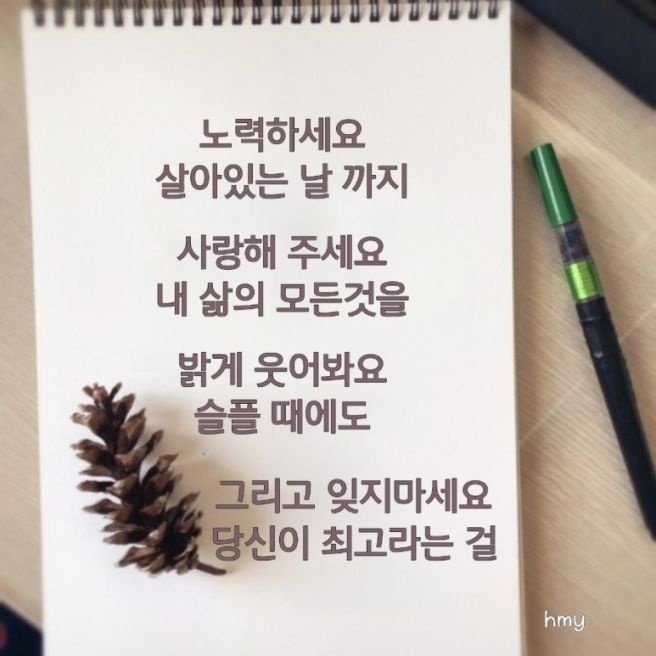 노력하세요
살아있는 날 까지
사랑해 주세요
내 삶의 모든것을
밝게 웃어봐요
슬플 때에도
그리고 잊지마세요
당신이 최고라는 걸
hmy